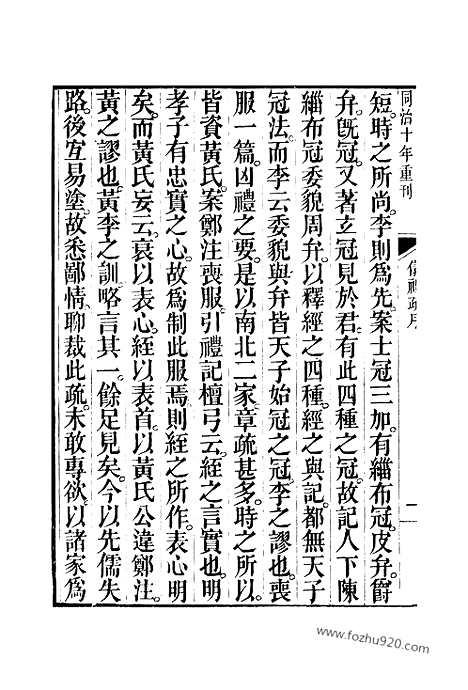 同治十年重刊
儀禮疏序
一
短。時之所尚。李則爲先。案士冠三加。有緇布冠。皮弁。爵
弁。旣冠。又著玄冠見於君。有此四種之冠。故記人下陳
緇布冠委貌周弁。以釋經之四種。經之與記。都無天子
冠法。而李云委貌與弁皆天子始冠之冠。李之謬也。喪
服一篇。凶禮之要。是以南北二家。章疏甚多。時之所以
皆資黃氏。案鄭注喪服。引禮記檀弓云。絰之言實也。明
孝子有忠實之心。故爲制此服焉。則絰之所作。表心明
矣。而黃氏妄云。衰以表心。絰以表首。以黃氏公違鄭注。
黃之謬也。黃李之訓。略言其一。餘足見矣。今以先儒失
路。後宜易塗。故悉鄙情。聊裁此疏。未敢專欲。以諸家爲
www.fozhu920.com